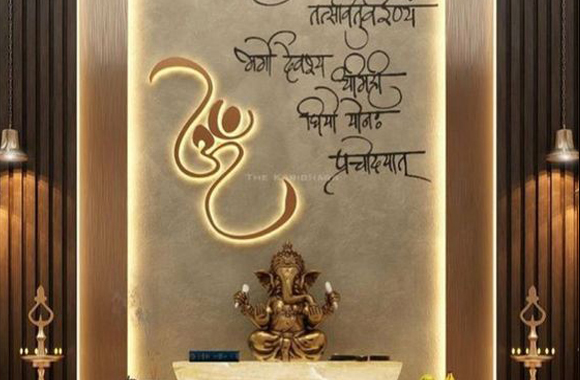 तत्सवितुर्वरेण्यं
भर्गो देवस्य
धीमही
धियो योनः
प्रचोदयात्